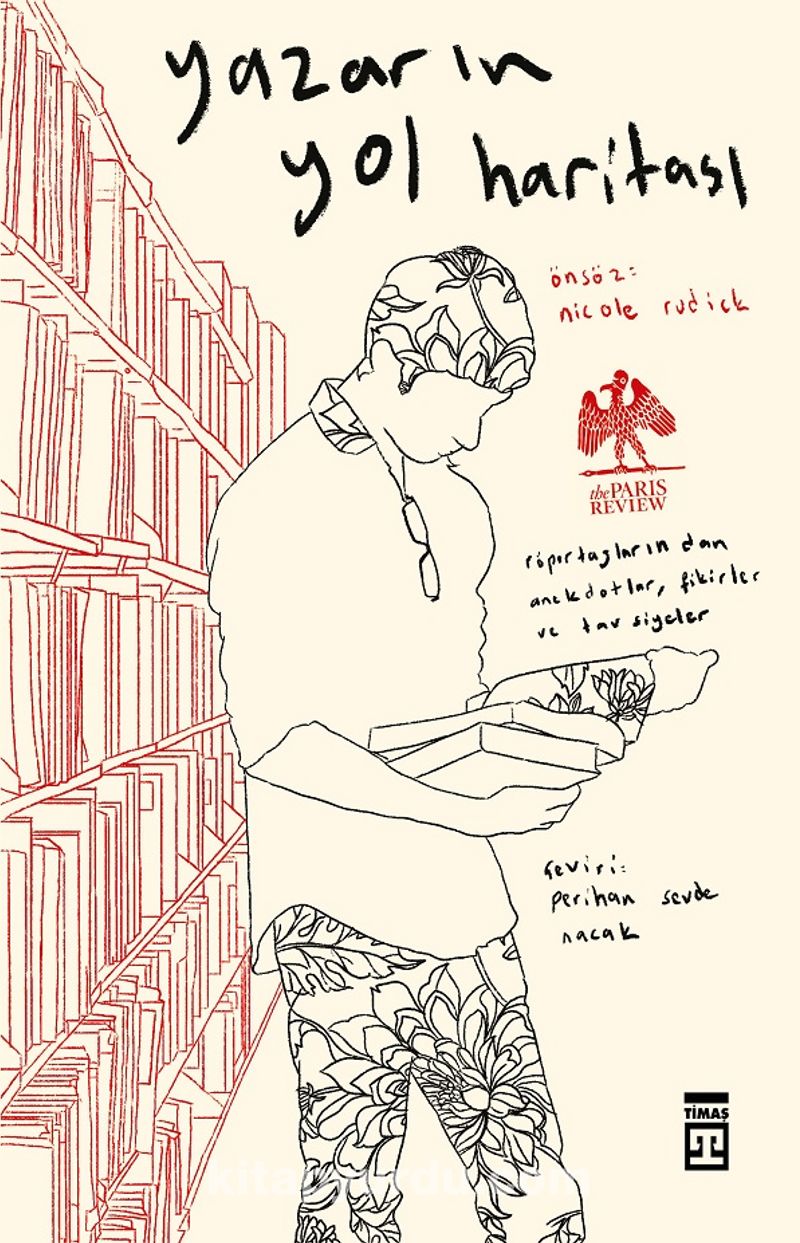 yazarın
yol haritası
önsöz:
nicole rudick
the PARIS
REVIEW
röportajlarından
anekdotlar, fikirler
ve tavsiyeler
çeviri:
perihan sevde
nacak
TİMAŞ
kitapyurdu.com